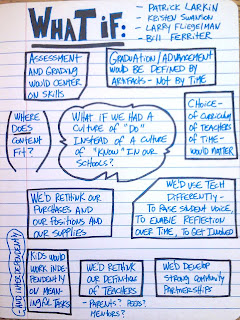 WHAT IF:
- PATRICK LARKIN
- KRISTEN SWANSON
- LARRY FLIEGELMAN
- BILL FERRITER
ASSESSMENT
AND GRADING
WOULD CENTER
ON SKILLS
GRADUATION/ADVANCEMENT
WOULD BE DEFINED BY
ARTIFACTS - NOT BY TIME
WHERE
DOES
CONTENT
FIT?
WHAT IF WE HAD A
CULTURE OF "DO"
INSTEAD OF A CULTURE
OF "KNOW" IN OUR
SCHOOLS?
CHOICE -
OF CURRICULUM
OF TEACHERS
OF TIME -
WOULD MATTER
WE'D RETHINK OUR
PURCHASES AND
OUR POSITIONS AND
OUR SUPPLIES
WE'D USE TECH
DIFFERENTLY -
TO RAISE STUDENT VOICE,
TO ENABLE REFLECTION
OVER TIME, TO GET INVOLVED
KIDS WOULD
WORK INDE-
PENDENTLY
ON MEAN-
INGFUL TASKS
(AND INTERDEPENDENTLY)
WE'D RETHINK
OUR DEFINITION
OF TEACHERS
- PARENTS? PEERS?
MENTORS?
WE'D DEVELOP
STRONG COMMUNITY
PARTNERSHIPS